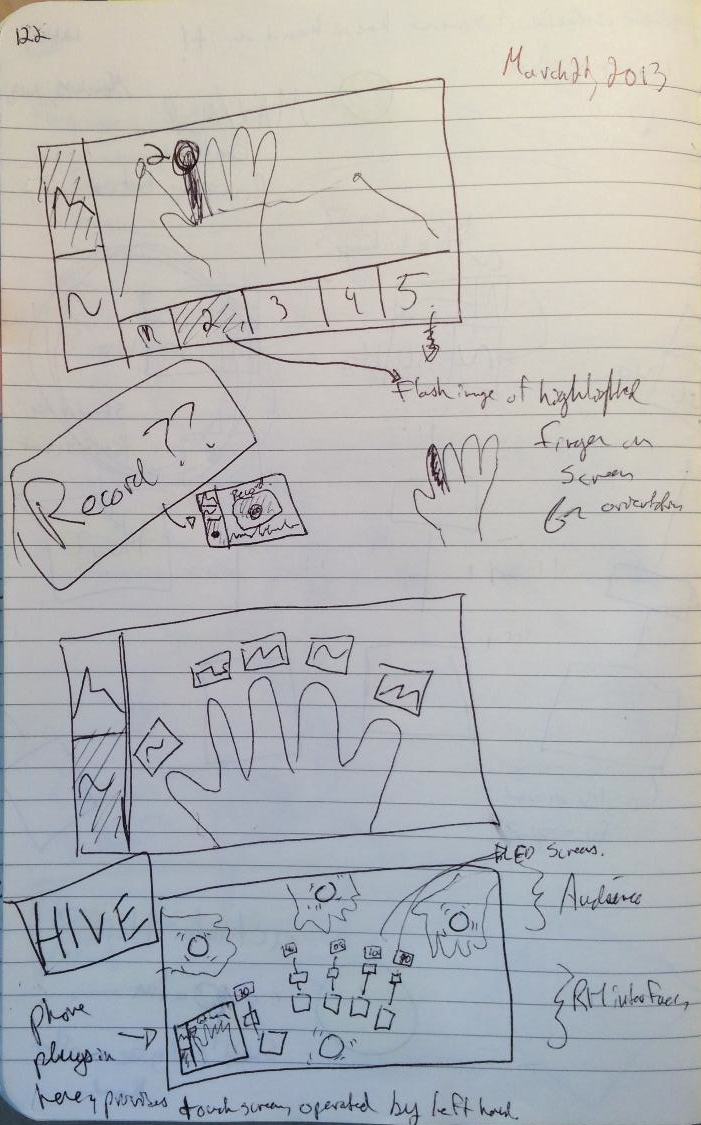 122
March 21, 2013
2
1 2 3 4 5
Flash image of highlighted
finger on
screen
for orientation
Record??
Record
OLED Screens.
HIVE
Audience
RH interface,
phone
plugs in
here, provides touch screen, operated by left hand.